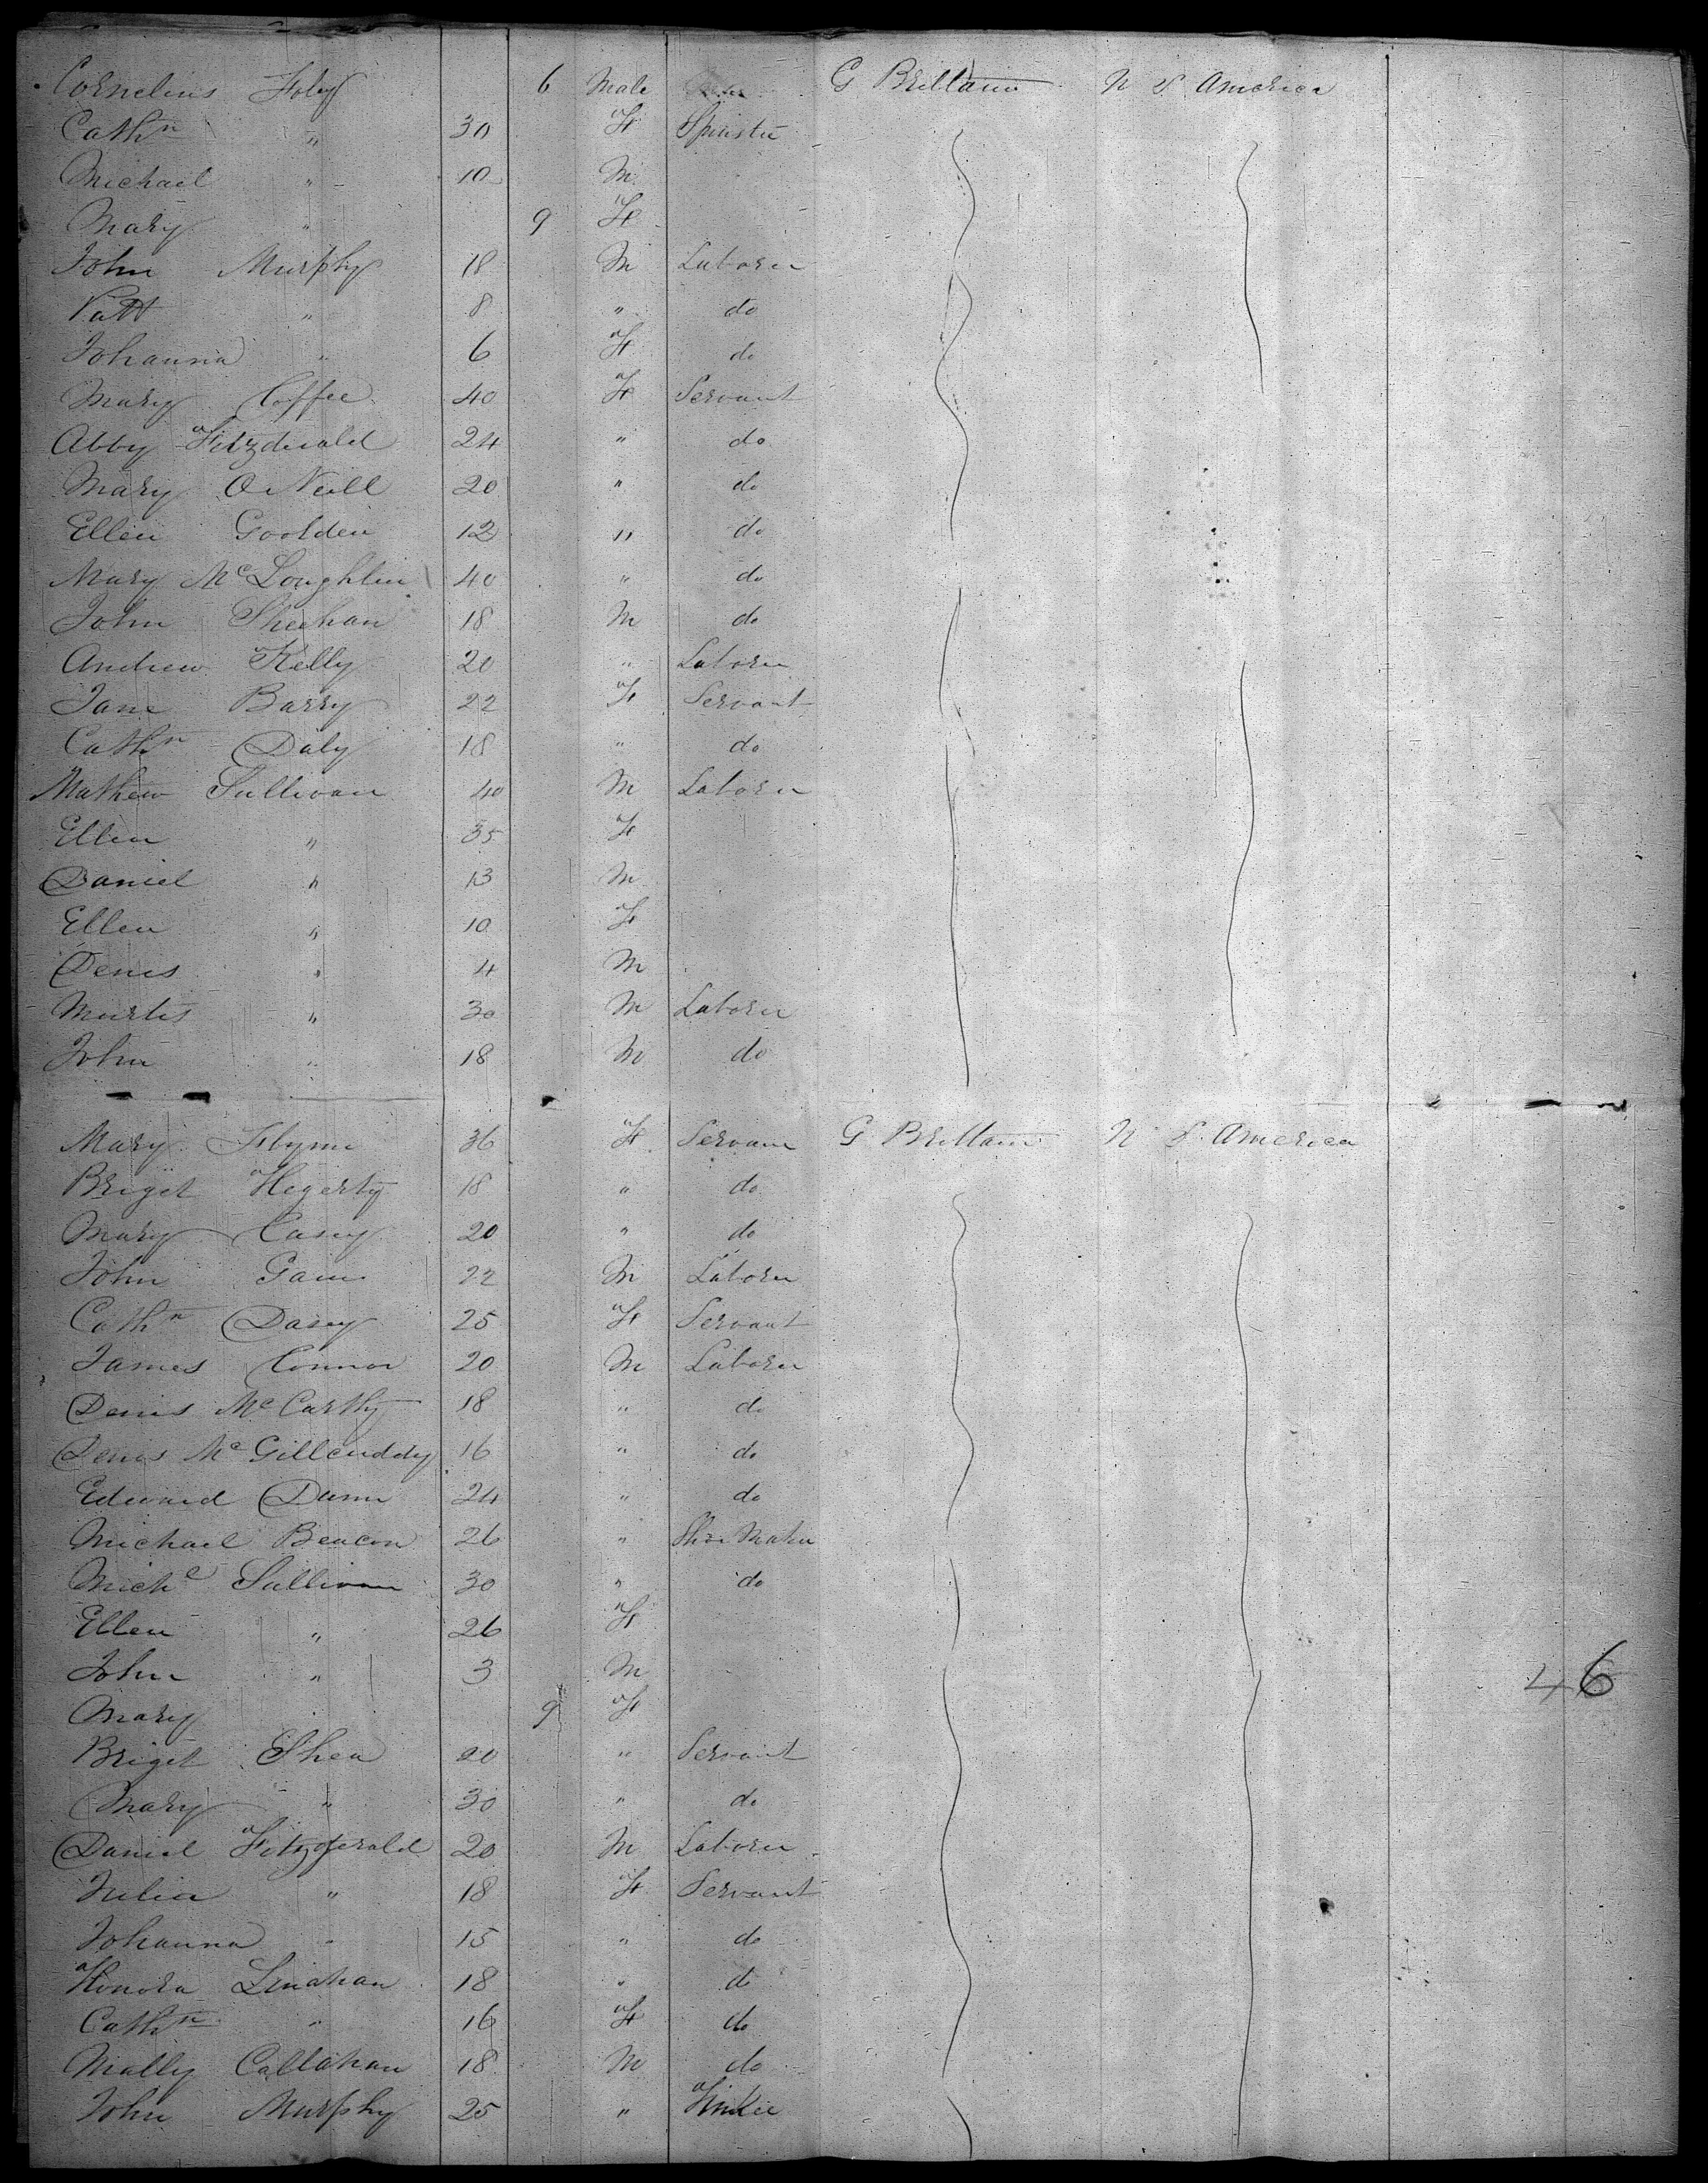 Cornelius Foley 6 Male G Brittain N S America
Cathn " 30 F Spinster
Michael " 10 M
Mary " 9 F
John Murphy 18 M Laborer
Patt " 8 " do
Johanna " 6 F do
Mary Coffee 40 F Servant
Abby Fitzderald 24 " do
Mary O Neill 20 " do
Ellen Goolden 12 " do
Mary McLoughlin 40 " do
John Sheehan 18 M do
Andrew Kelly 20 " Laborer
Jane Barry 22 F Servant
Cathn Daly 18 " do
Mathew Sullivan 40 M Laborer
Ellen " 35 F
Daniel " 13 M
Ellen " 10 F
Denis " 4 M
Murtis " 30 M Laborer
John " 18 M do
Mary Flynn 36 F Servant G Brittain N S America
Briget Hegerty 18 " do
Mary Casey 20 " do
John Gain 22 M Laborer
Cathn Dasey 25 F Servant
James Connor 20 M Laborer
Denis McCarthy 18 " do
Denis McGillcuddy 16 " do
Edward Dunn 24 " do
Michael Beacon 26 " Shoe Maker
Michl Sullivan 30 " do
Ellen " 26 F
John " 3 M
Mary 9 F
Briget Shea 20 " Servant
Mary " 30 " do
Daniel Fitzgerald 20 M Laborer
Julia " 18 F Servant
Johanna " 15 " do
Honora Linahan 18 " do
Cathn " 16 F do
Mally Callahan 18 M do
John Murphy 25 "
46